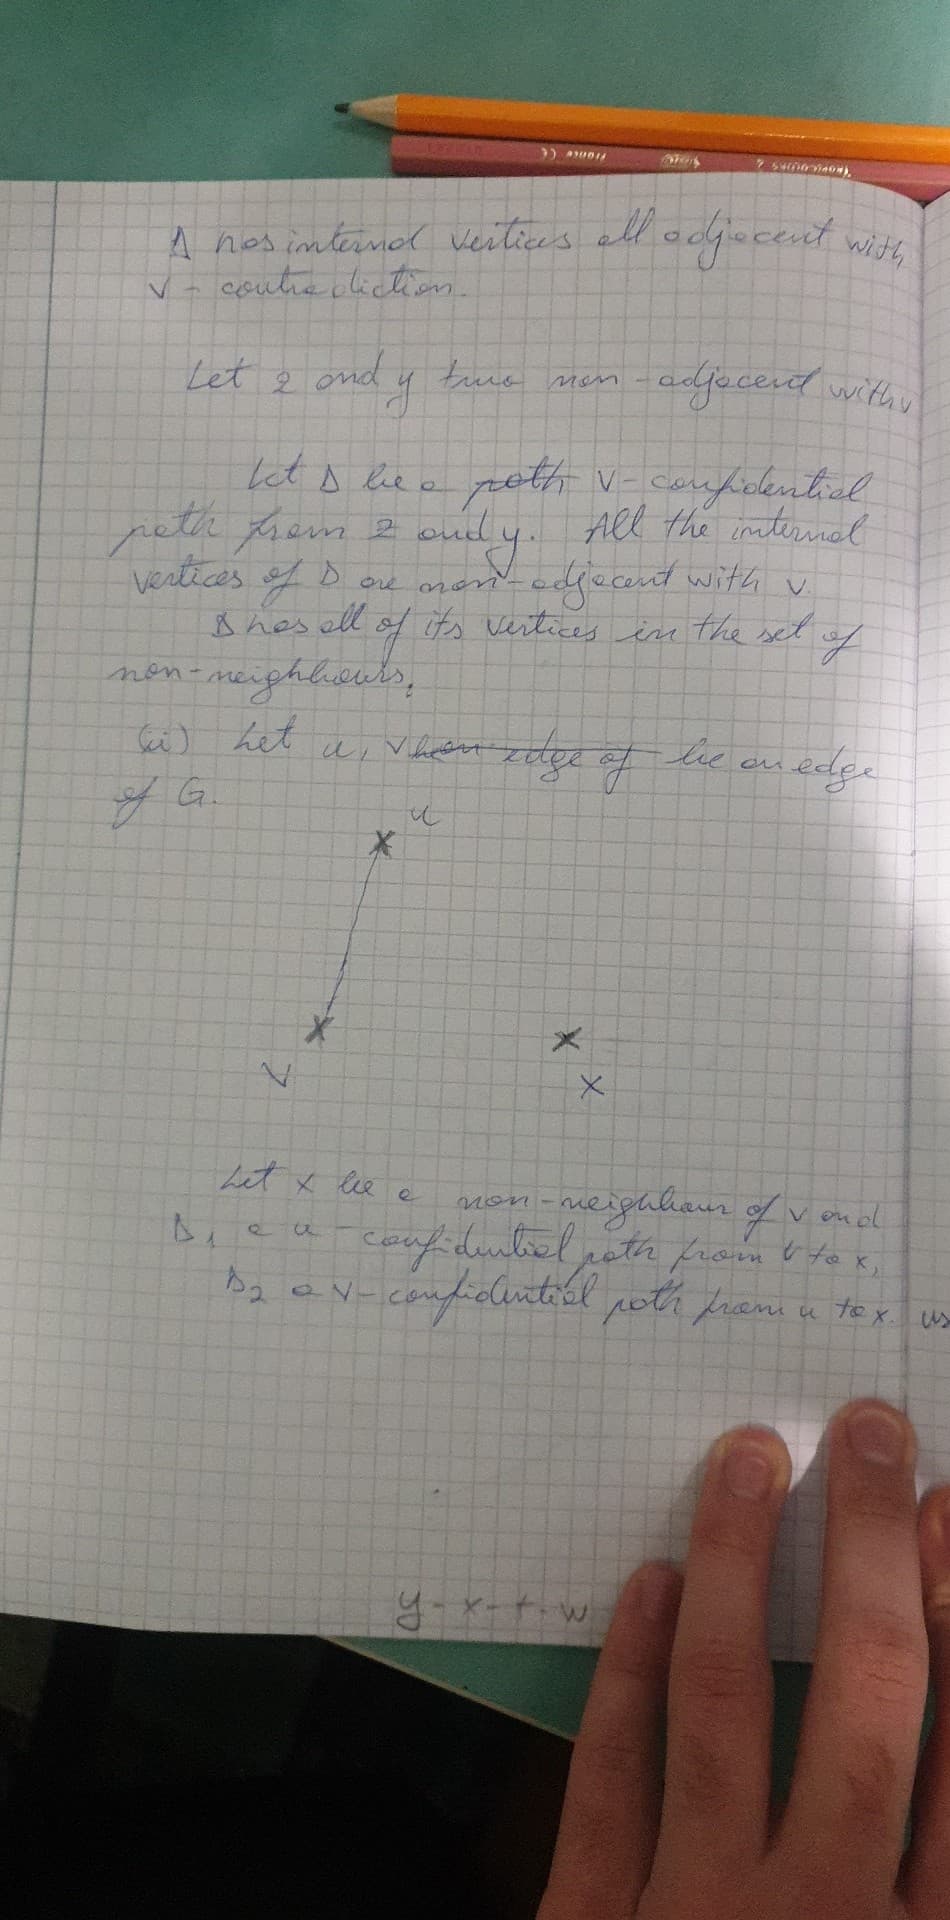 France CE
TROPICOLORS 2
Δ has internal vertices all adjacent with
v - contradiction.
Let z and y two non-adjacent with v
Let Δ be a path v-confidential
path from z and y. All the internal
vertices of Δ are non-adjacent with v.
Δ has all of its vertices in the set of
non-neighbours.
(ii) Let u, v be an edge of be an edge
of G.
u
v
x
Let x be a non-neighbour of v and
Δ1 a u-confidential path from v to x,
Δ2 a v-confidential path from u to x.
y-x-t-w